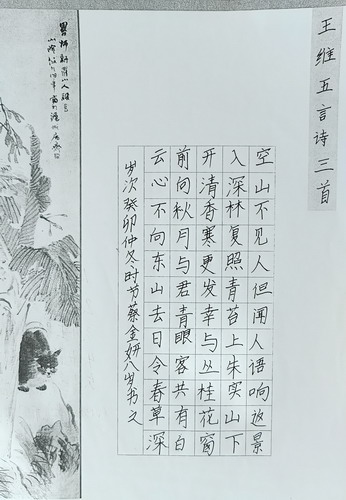 王维五言诗三首
空山不见人但闻人语响返景
入深林复照青苔上朱实山下
开清香寒更发幸与丛桂花窗
前向秋月与君青眼客共有白
云心不向东山去日令春草深
岁次癸卯仲冬时节蔡金妍八岁书之